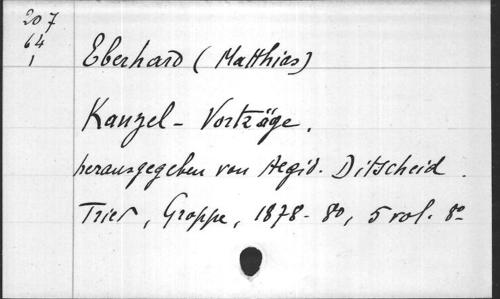 207
64
1
Eberhard (Matthias)
Kanzel-Vorträge.
herausgegeben von Aegid. Ditscheid.
Trier, Groppe, 1878-80, 5 vol. 8º